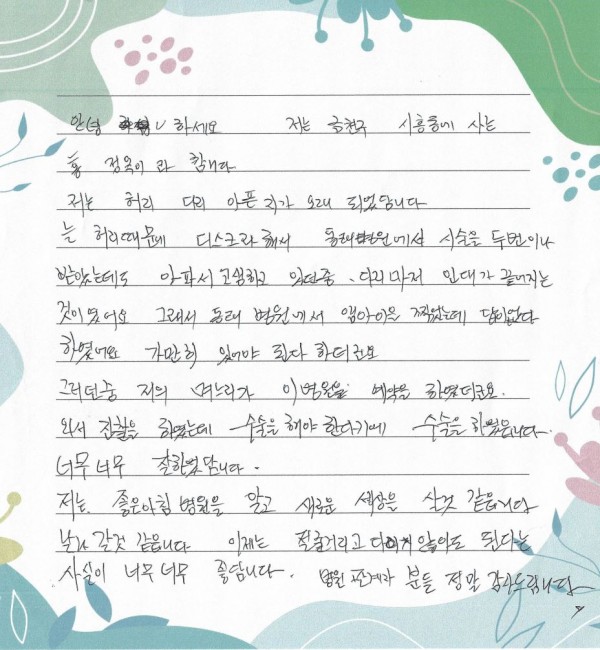 안녕 하세요 저는 금천구 시흥동에 사는
홍 정옥이 라 합니다
저는 허리 다리 아픈 지가 오래 되었답니다
늘 허리때문에 디스크라 해서 동네병원에서 시술을 두번이나
받았는데도 아파서 고생하고 있던중. 다리마저 인대가 끊어지는
것이였어요 그래서 동네 병원에서 엠아이을 찍었는데 답이없다
하였어요 가만히 있어야 된다 하더군요
그러던중 저의 며느리가 이병원을 예약을 하였더군요.
와서 진찰을 하였는데 수술을 해야 한다기에 수술을 하였읍니다.
너무너무 잘하였답니다.
저는 좋은아침 병원을 알고 새로운 세상을 산것 같읍니다
날아 갈것 같읍니다 이제는 쩔룩거리고 다니지 않아도 된다는
사실이 너무 너무 좋답니다. 병원 관계자 분들 정말 감사드립니다